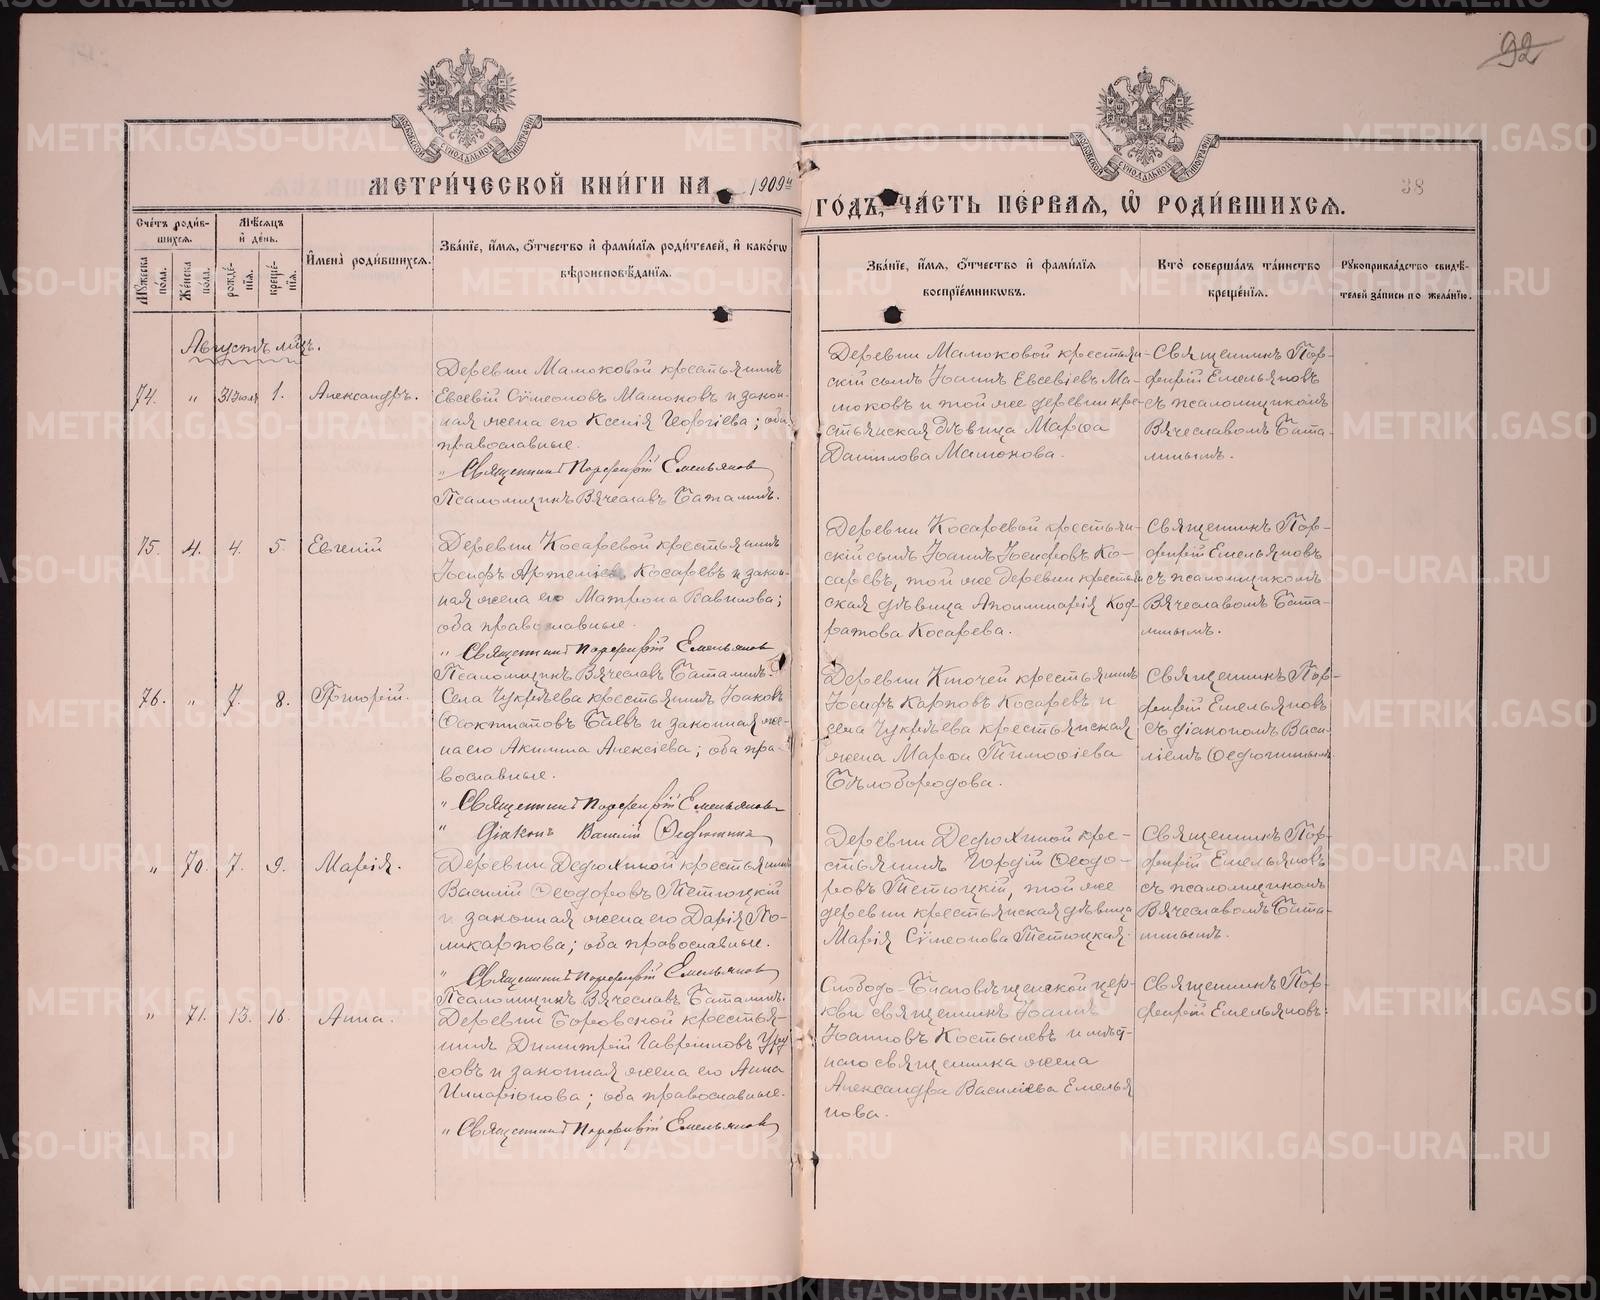 92
38
МЕТРИ́ЧЕСКОЙ КНИ́ГИ НА 1909й
ГОДЪ, ЧА́СТЬ ПЕ́РВАЯ, Ѿ РОДИ́ВШИХСЯ.
Сче́тъ роди́вшихся.
Му́жеска по́ла.
Же́нска по́ла.
Мѣ́сяцъ и҆ де́нь.
рожде́нїя.
креще́нїя.
И҆мена̀ роди́вшихся.
Зва́нїе, и҆́мя, ѻ҆́тчество и҆ фами́лїя роди́телей, и҆ како́гѡ
вѣроисповѣ́данїя.
Зва́нїе, и҆́мя, ѻ҆́тчество и҆ фами́лїя
воспрїе́мниковъ.
Кто̀ соверша́лъ та́инство
креще́нїя.
Рꙋкоприкла́дство свидѣ́-
телей за́писи по жела́нїю.
Августъ мѣсц.
74. " 31 іюля 1. Александръ.
Деревни Мамоковой крестьянинъ
Евсевій Сѵмеоновъ Мамоковъ и закон-
ная жена его Ксенія Георгіева; оба
православные.
" Священникъ Порфирій Емельяновъ
Псаломщикъ Вячеславъ Баталинъ.
Деревни Мамоковой крестьян-
скій сынъ Іоаннъ Евсевіевъ Ма-
моковъ и той же деревни кре-
стьянская дѣвица Марѳа
Данилова Мамокова.
Священникъ Пор-
фирій Емельяновъ
съ псаломщикомъ
Вячеславомъ Бата-
линымъ.
75. 4. 4. 5. Евгеній
Деревни Косаревой крестьянинъ
Іосифъ Артеміевъ Косаревъ и закон-
ная жена его Матрона Вавилова;
оба православные.
" Священникъ Порфирій Емельяновъ
Псаломщикъ Вячеславъ Баталинъ.
Деревни Косаревой крестьян-
скій сынъ Іоаннъ Іосифовъ Ко-
саревъ, той же деревни крестьян
ская дѣвица Аполлинарія Код-
ратова Косарева.
Священникъ Пор-
фирій Емельяновъ
съ псаломщикомъ
Вячеславомъ Бата-
линымъ.
76. " 7. 8. Григорій.
Села Чукрѣева крестьянинъ Іоаковъ
Баевъ и законная же-
на его Акилина Алексіева; оба пра-
вославные.
" Священникъ Порфирій Емельяновъ
" Діаконъ Василій Ѳедюшинъ
Деревни Ключей крестьянинъ
Іосифъ Карповъ Косаревъ и
села Чукрѣева крестьянская
жена Марѳа Тимоѳіева
Бѣлобородова.
Священникъ Пор-
фирій Емельяновъ
съ діакономъ Васи-
ліемъ Ѳедюшинымъ
" 70. 7. 9. Марія.
Деревни Дедюхиной крестьянинъ
Василій Ѳеодоровъ Тетюцкій
и законная жена его Дарія По-
ликарпова; оба православные.
" Священникъ Порфирій Емельяновъ
Псаломщикъ Вячеславъ Баталинъ.
Деревни Дедюхиной кре-
стьянинъ Гордій Ѳеодо-
ровъ Тетюцкій, той же
деревни крестьянская дѣвица
Марія Сѵмеонова Тетюцкая.
Священникъ Пор-
фирій Емельяновъ
съ псаломщикомъ
Вячеславомъ Бата-
линымъ.
" 71. 13. 16. Анна.
Деревни Боровской крестья-
нинъ Димитрій Гавріиловъ Уру
совъ и законная жена его Анна
Иларіонова; оба православные.
" Священникъ Порфирій Емельяновъ
Слободо-Благовѣщенской цер-
кви священникъ Іоаннъ
Іоанновъ Костылевъ и мѣст-
наго священника жена
Александра Василіева Емелья
нова.
Священникъ Пор-
фирій Емельяновъ.
METRIKI.GASO-URAL.RU